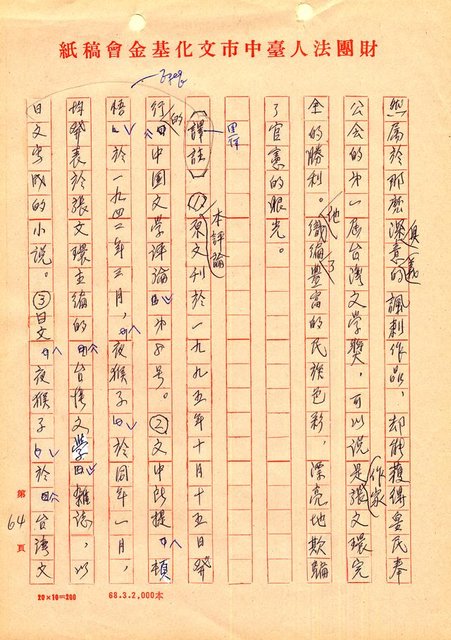 財團法人臺中市文化基金會稿紙
然屬於那麼深奧意義的諷刺作品，却能獲得皇民奉
公会的第一屆台灣文学獎，可以說是作家張文環完
全的勝利。他織編了豐富的民族色彩，漂亮地欺騙
了官憲的眼光。
〔譯註〕①本評論原文刊於一九九五年十月十五日發
行的中国文学評論第8号。②文中所提頓
悟於一九四二年三月，夜猴子於同年一月，
均發表於張文環主編的台灣文学雜誌，以
日文寫成的小說。③日文夜猴子於台灣文
第64頁
20×10=200
68.3.2,000本